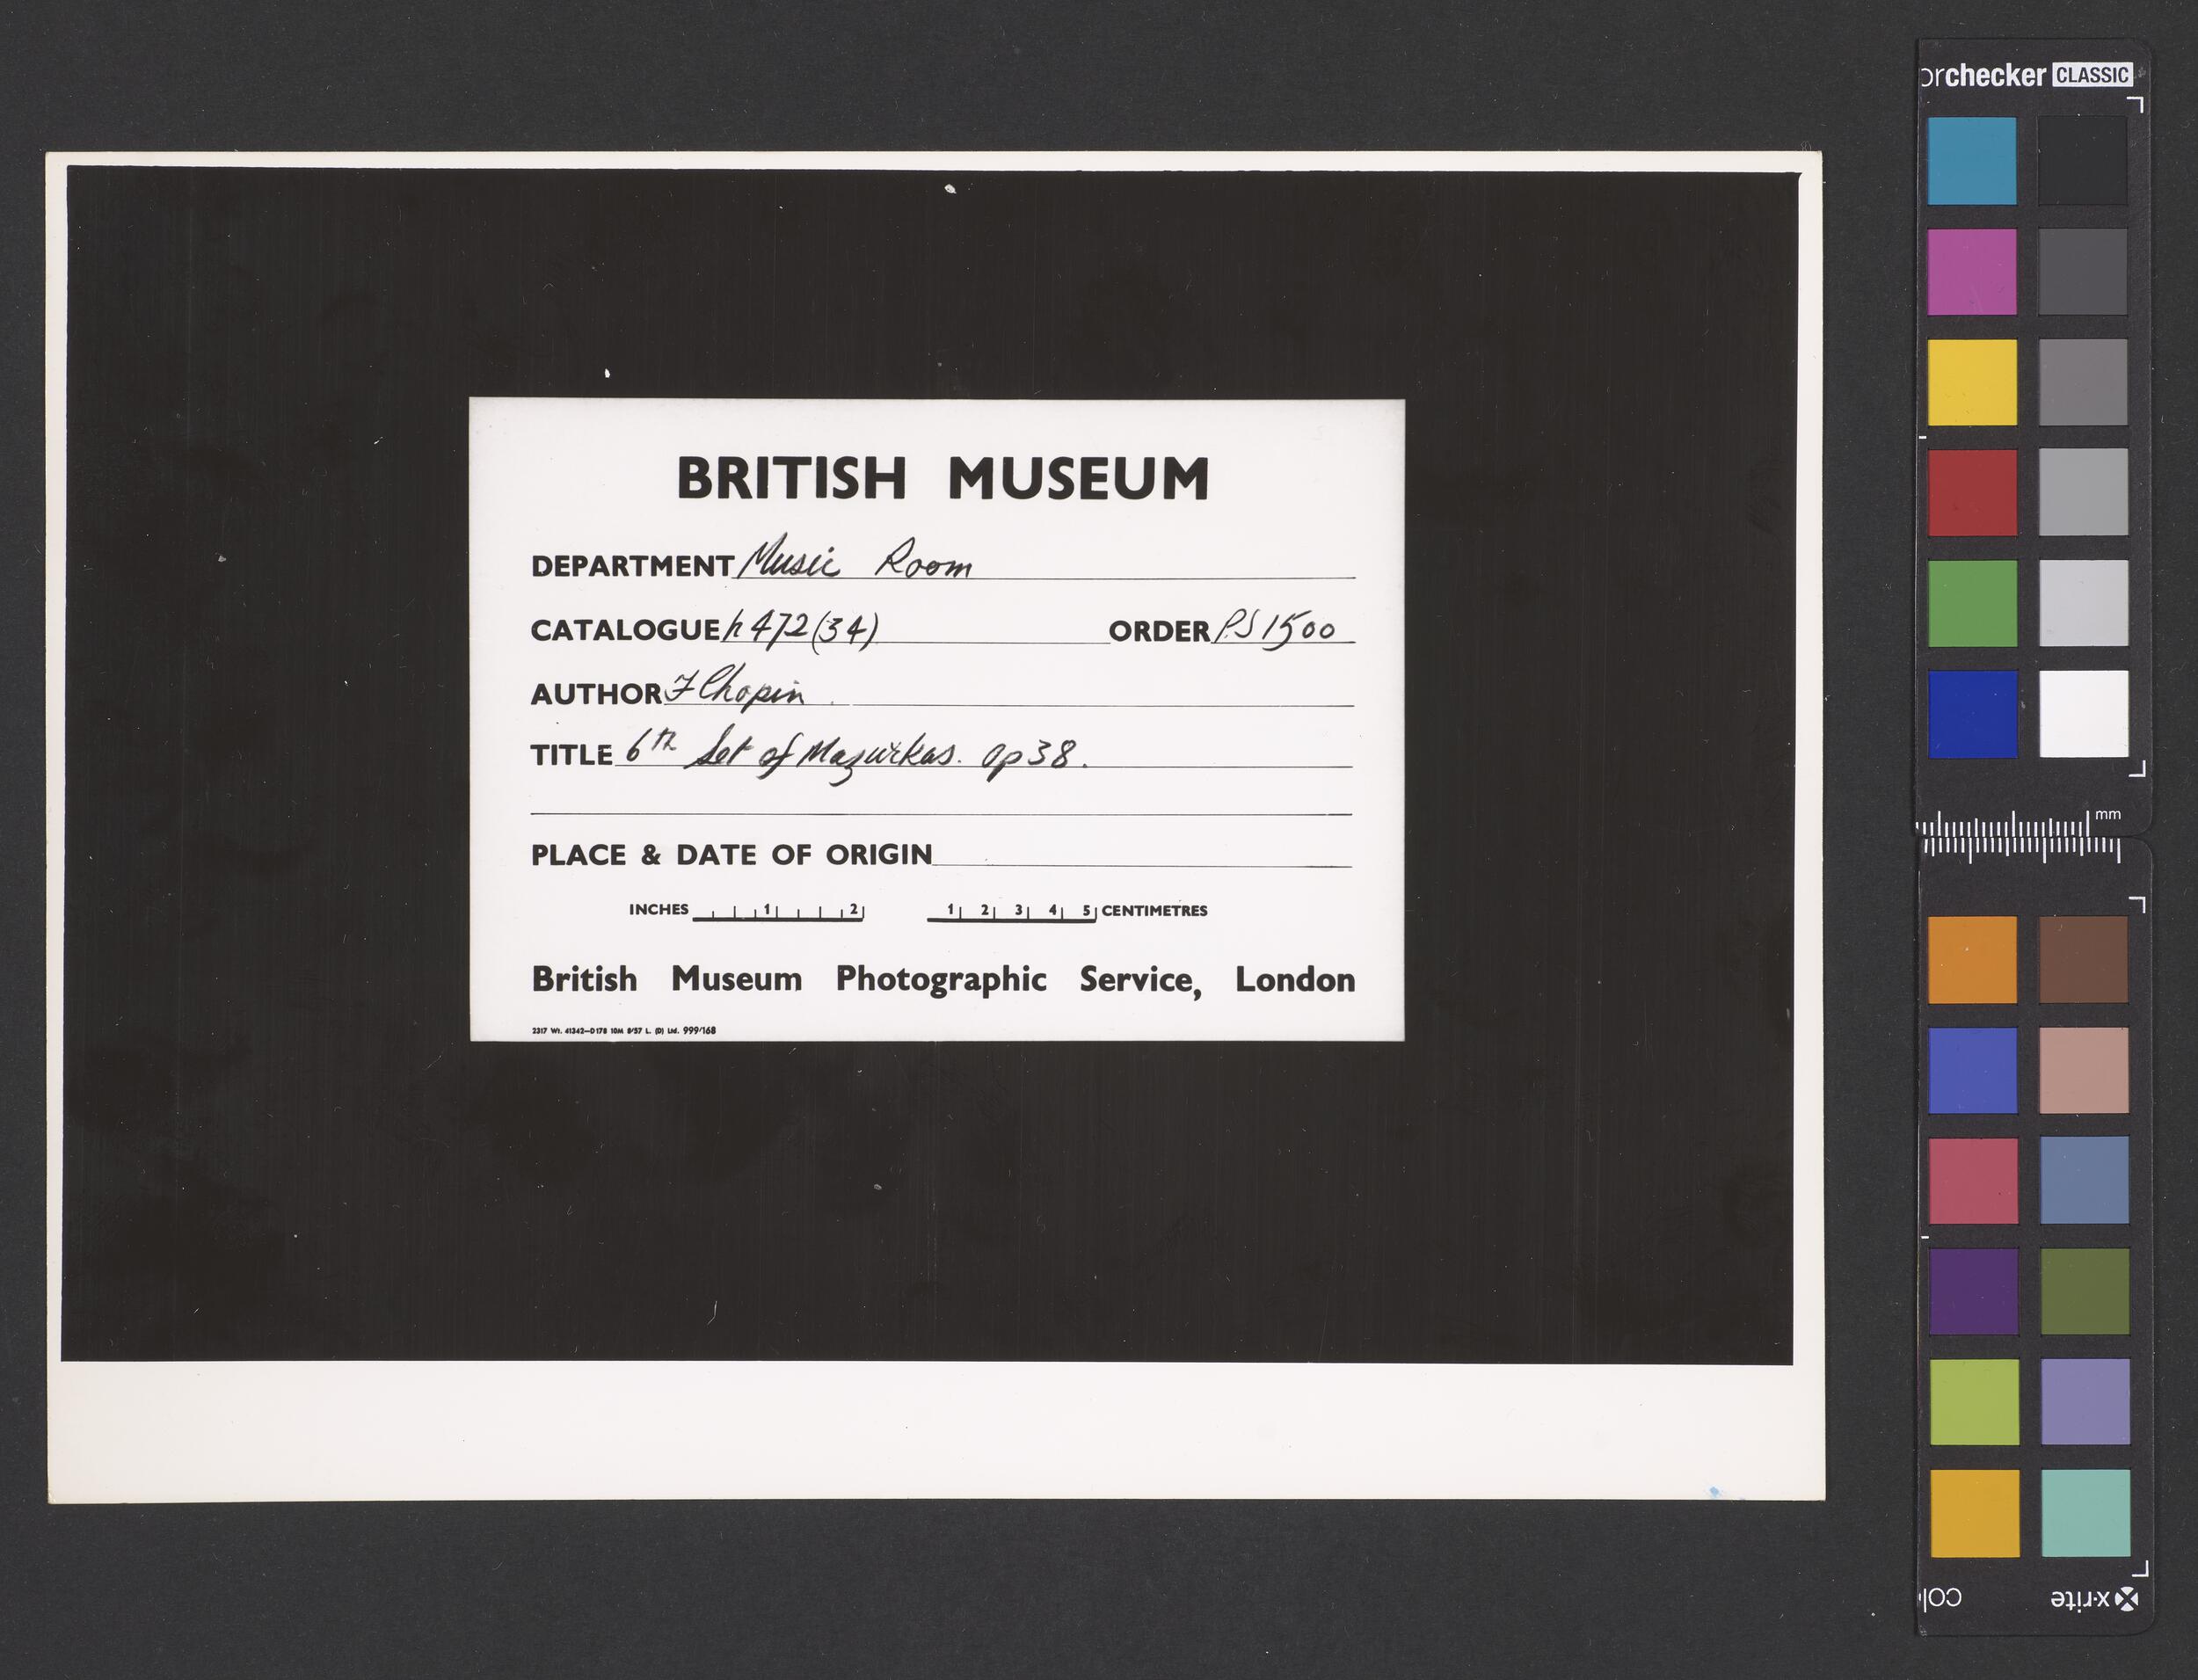 BRITISH MUSEUM
DEPARTMENT Music Room
CATALOGUE h 472 (34) ORDER PS 1500
AUTHOR F Chopin
TITLE 6th Set of Mazurkas. Op 38.
PLACE & DATE OF ORIGIN
INCHES 1 2 1 2 3 4 5 CENTIMETRES
British Museum Photographic Service, London
2317 Wt. 41342—D178 10M 8/57 L. (D) Ltd. 999/168
orchecker CLASSIC
mm
x-rite
colo